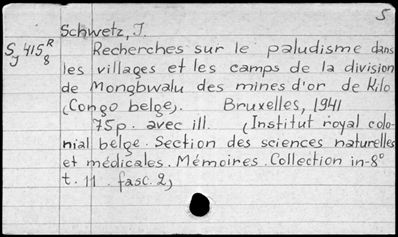 5
Schwetz, J.
SJ 415 R 8 Recherches sur le paludisme dans
les villages et les camps de la division
de Mongbwalu des mines d'or de Kilo
(Congo belge). Bruxelles, 1941
75p. avec ill. (Institut royal colo-
nial belge. Section des sciences naturelles
et médicales. Mémoires. Collection in-8°
t. 11. fasc. 2)